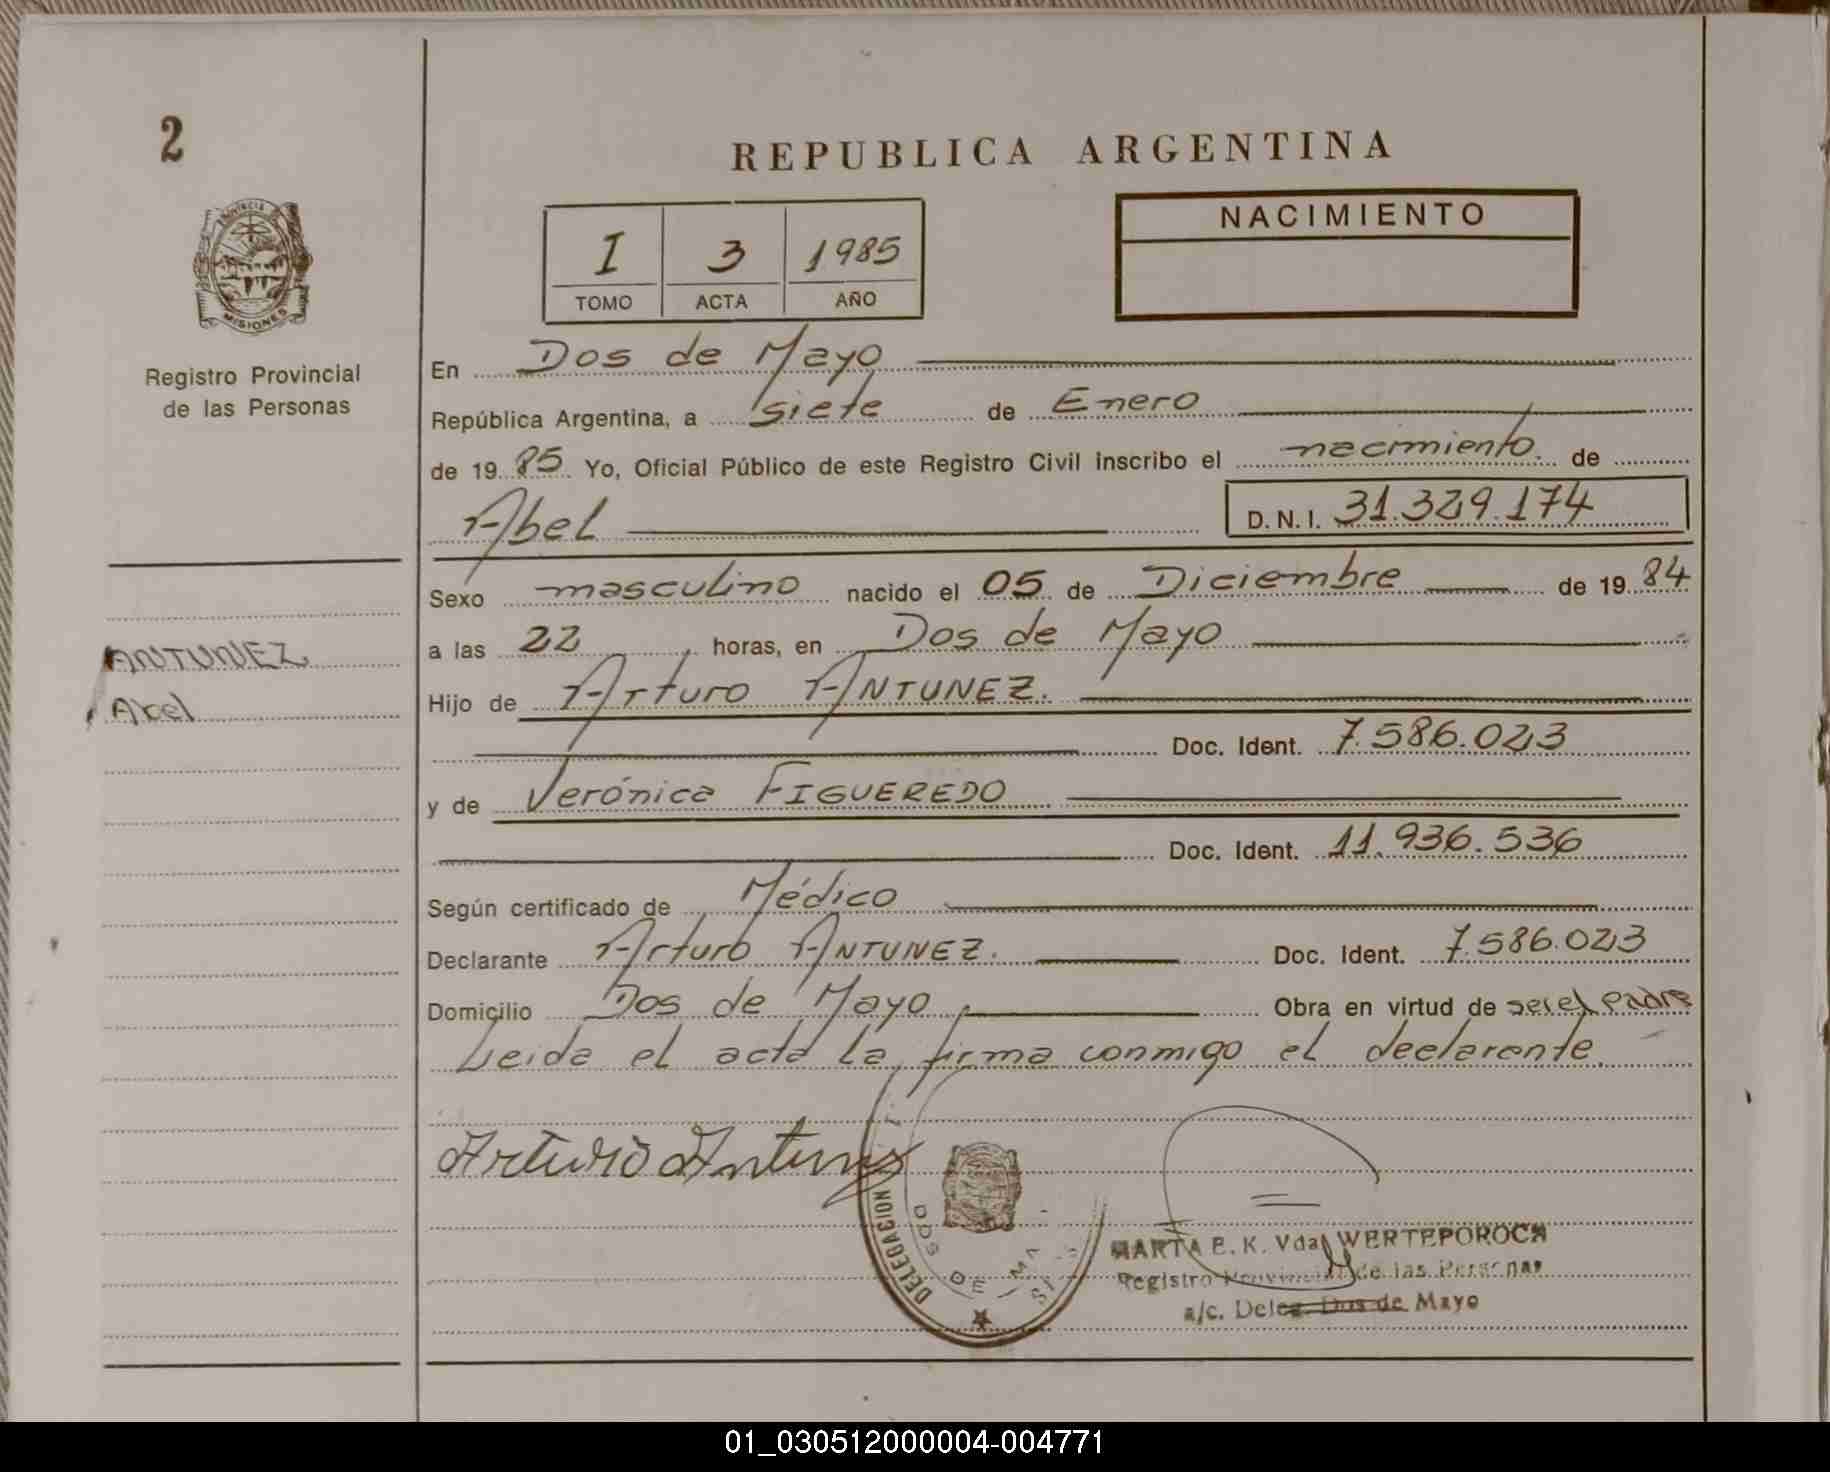 2
REPUBLICA ARGENTINA
PROVINCIA D
MISIONES
Registro Provincial
de las Personas
I 3 1985
TOMO ACTA AÑO
NACIMIENTO
En Dos de Mayo
República Argentina, a siete de Enero
de 19 85 Yo, Oficial Público de este Registro Civil inscribo el nacimiento. de
Abel D. N. I. 31.329.174
Sexo masculino nacido el 05 de Diciembre de 19 84
a las 22 horas, en Dos de Mayo
ANTUNEZ
Abel
Hijo de Arturo ANTUNEZ.
Doc. Ident. 7.586.023
y de Verónica FIGUEREDO
Doc. Ident. 11.936.536
Según certificado de Médico
Declarante Arturo ANTUNEZ. Doc. Ident. 7.586.023
Domicilio Dos de Mayo Obra en virtud de ser el padre
Leida el acta la firma conmigo el declarante.
Arturo Antunez
DELEGACION
DOS DE MA
MARTA E. K. Vda WERTEPOROCH
Registro Provincial de las Personas
a/c. Deleg. Dos de Mayo
01_030512000004-004771